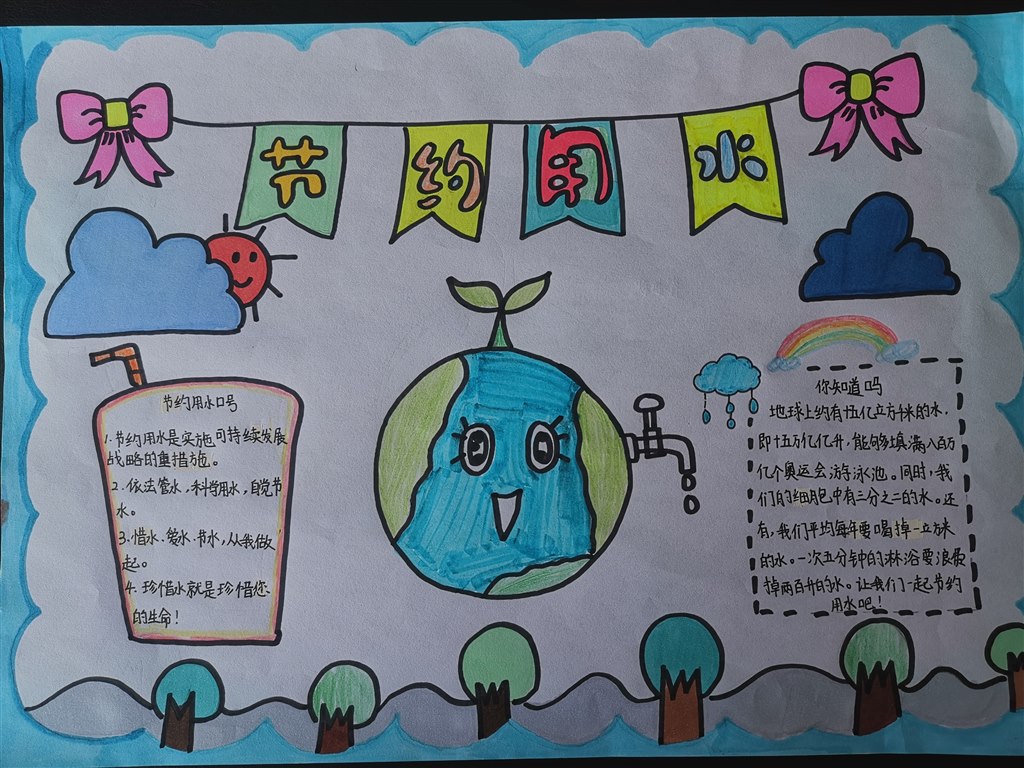 节约用水
节约用水口号
1.节约用水是实施可持续发展
战略的重措施。
2.依法管水,科学用水,自觉节
水。
3.惜水、爱水、节水,从我做
起。
4.珍惜水就是珍惜您
的生命!
你知道吗
地球上约有十五亿立方千米的水,
即十五万亿亿升,能够填满八百万
亿个奥运会游泳池。同时,我
们的细胞中有三分之二的水。还
有,我们平均每年要喝掉一立方米
的水。一次五分钟的淋浴要浪费
掉两百升的水。让我们一起节约
用水吧!